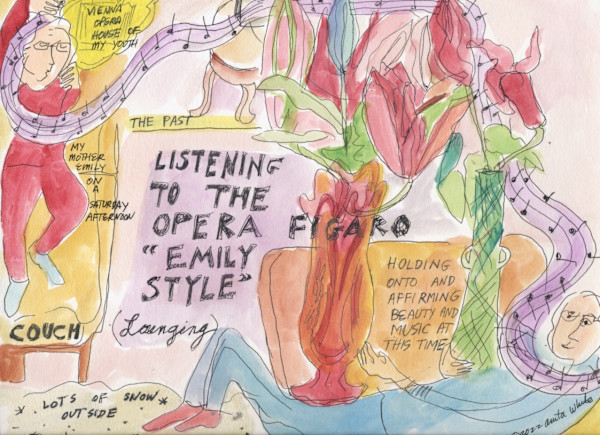 VIENNA
OPERA
HOUSE OF
MY YOUTH
THE PAST
MY
MOTHER
EMILY
ON
A
SATURDAY
AFTERNOON
LISTENING
TO THE
OPERA FIGARO
"EMILY
STYLE"
(Lounging)
HOLDING
ONTO AND
AFFIRMING
BEAUTY AND
MUSIC AT
THIS TIME
COUCH
* LOTS OF SNOW *
OUTSIDE
©2022 anita White